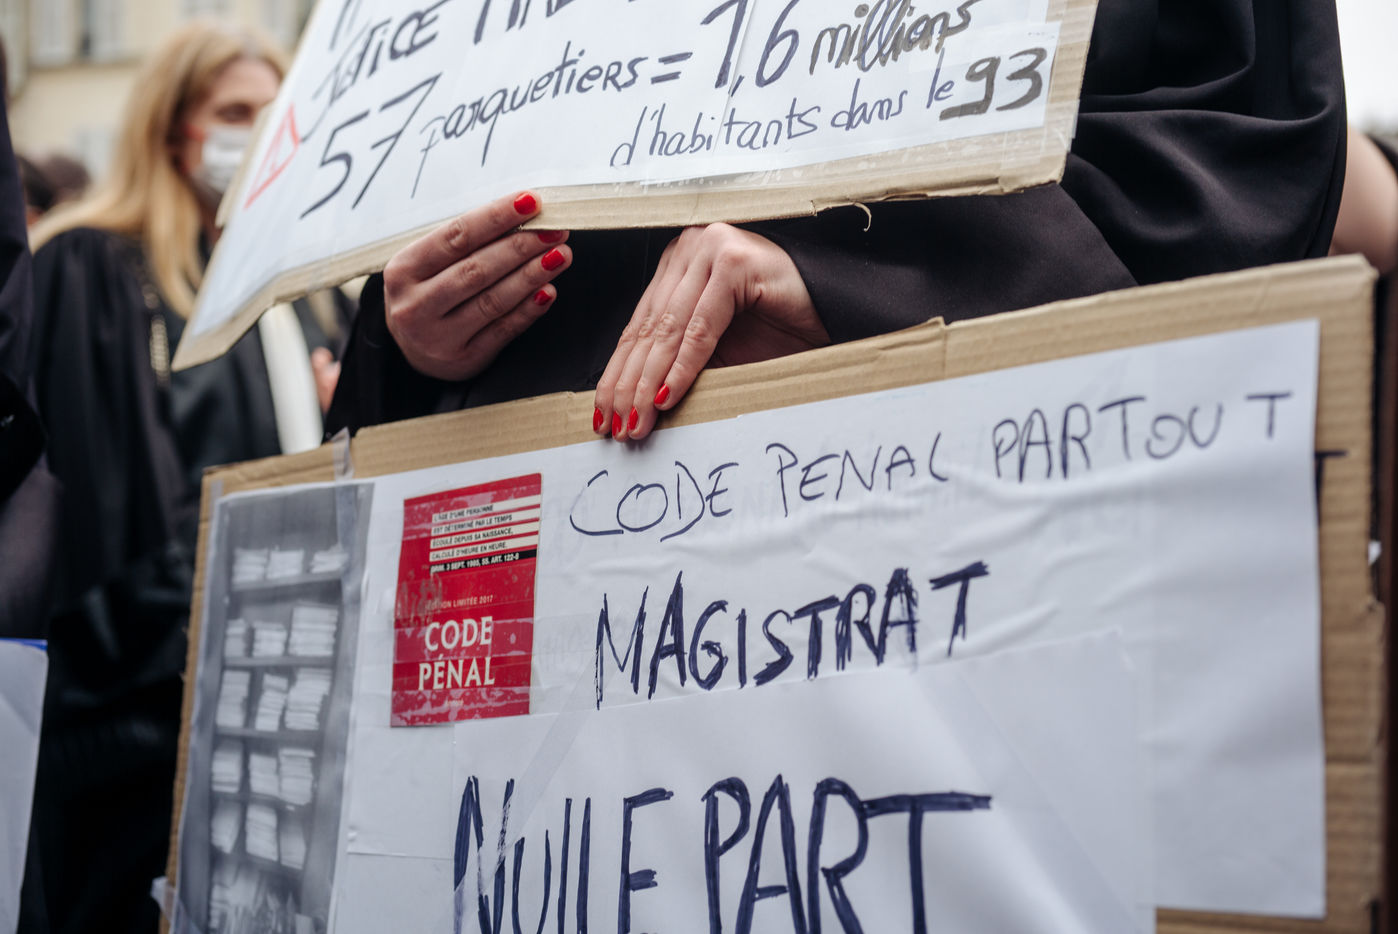 JUSTICE
57 parquetiers = 1,6 millions
d'habitants dans le 93
CODE PENAL PARTOUT
MAGISTRAT
NULLE PART
L'ÂGE D'UNE PERSONNE
EST DÉTERMINÉ PAR LE TEMPS
ÉCOULÉ DEPUIS SA NAISSANCE,
CALCULÉ D'HEURE EN HEURE.
CRIM. 3 SEPT. 1985, SS. ART. 122-8
ÉDITION LIMITÉE 2017
CODE
PÉNAL